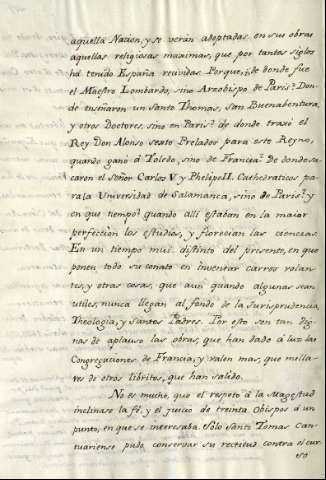 aquella Nacion, y se verán adoptadas en sus obras
aquellas religiosas maximas, que por tantos siglos
há tenido España reunidas. Porque; de donde fue
el Maestro Lombardo, sino Arzobispo de Paris? Don-
de enseñaron un Santo Thomas, San Buenabentura,
y otros Doctores, sino en Paris? de donde traxo el
Rey Don Alonso sexto Prelados para este Reyno,
quando ganó á Toledo, sino de Francia? De donde sa-
caron el Señor Carlos V y Phelipe II. Cathedraticos pa-
ra la Universidad de Salamanca, sino de Paris? y
en que tiempo? quando alli estaban en la maior
perfeccion los estudios, y florecian las ciencias.
En un tiempo mui distinto del presente, en que
ponen todo su conato en inventar carros volan-
tes, y otras cosas, que aun quando algunas sean
utiles, nunca llegan al fondo de la Jurisprudencia,
Theologia, y Santos Padres. Por esto son tan dig-
nas de aplauso las obras, que han dado á luz las
Congregaciones de Francia, y valen mas, que milla-
res de otros libritos, que han salido.
No es mucho, que el respeto á la Magestad
inclinase la fé, y el juicio de treinta Obispos á un
punto, en que se interesaba. Sólo Santo Tomas Can-
tuariense pudo conservar su rectitud contra el cur
so